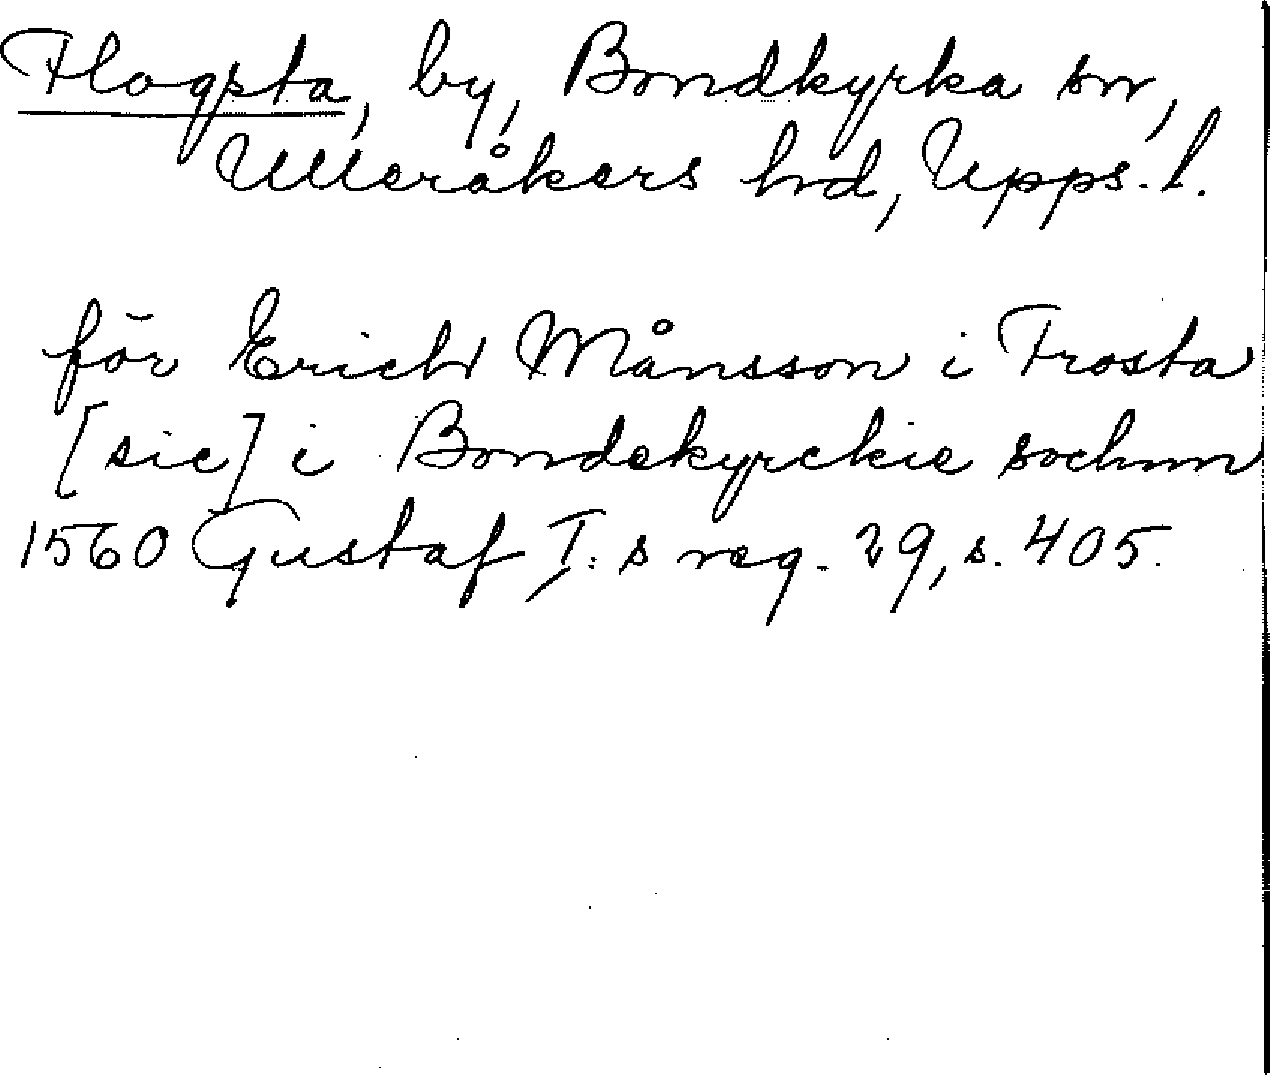 Flogsta, by, Bondkyrka sn,
Ulleråkers hd, Upps. l.
för Erich Månsson i Frosta
[sic] i Bondekyrckie sochnn
1560 Gustaf I:s reg. 29, s. 405.